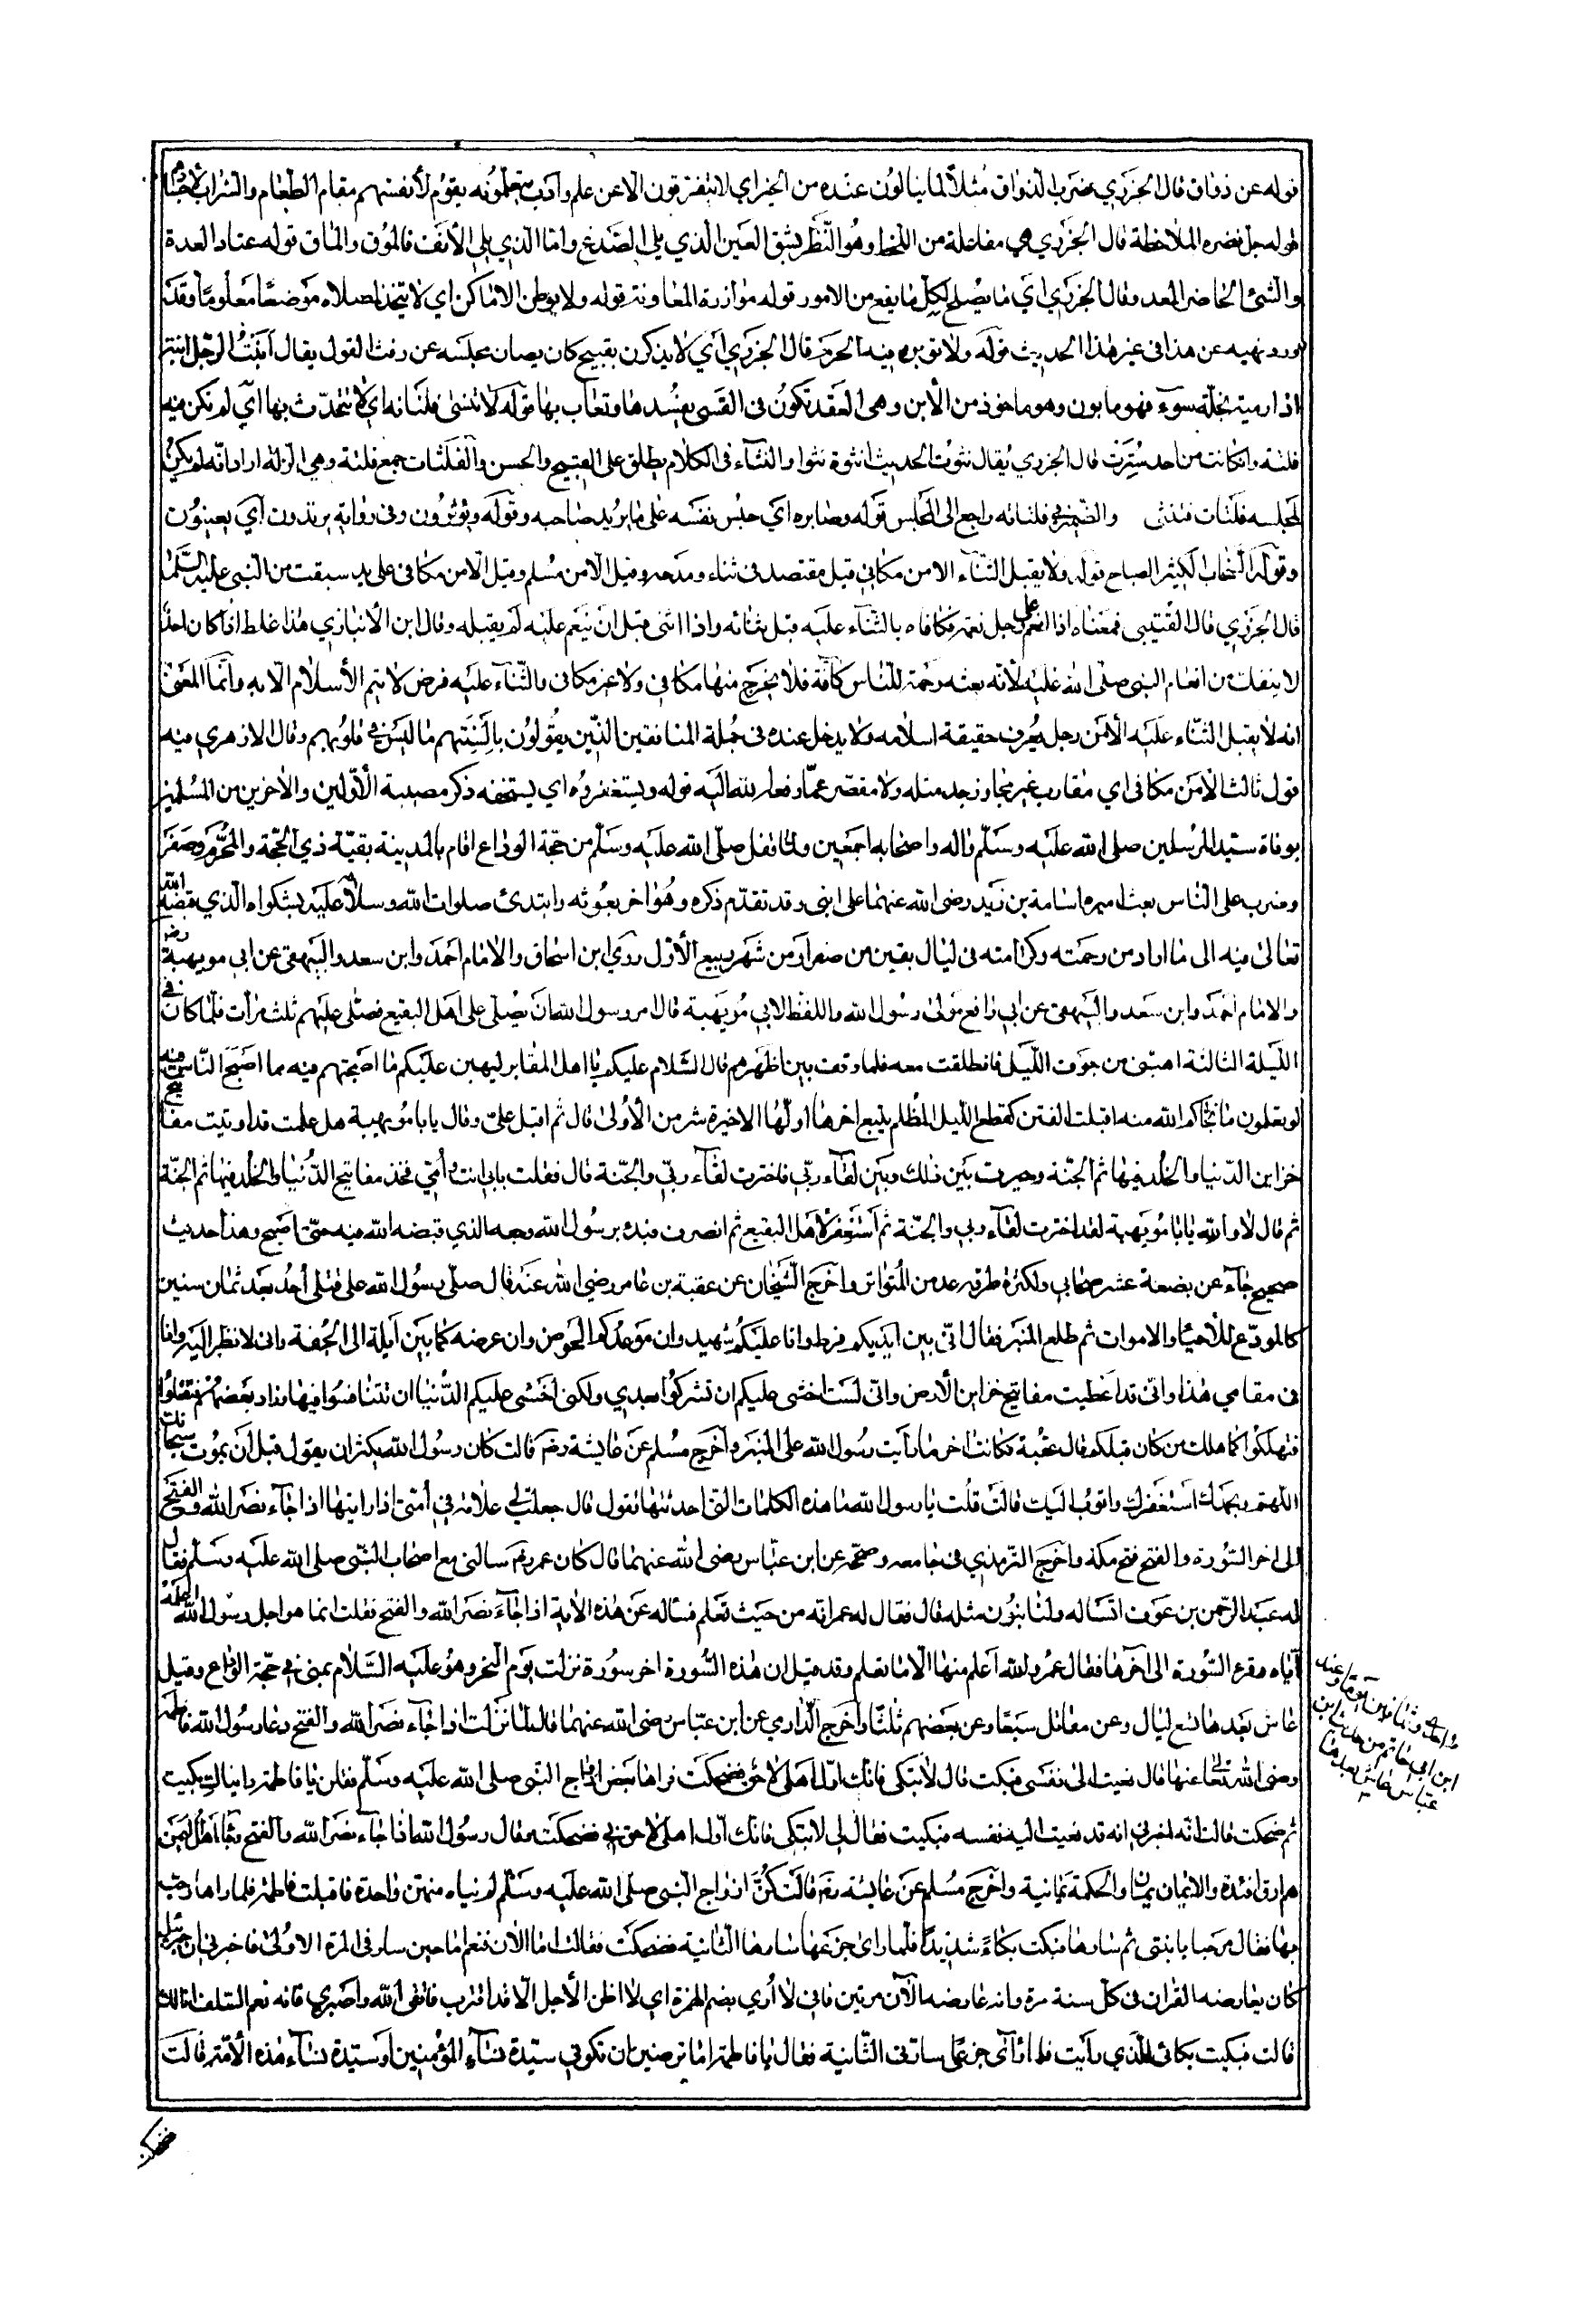 قوله عن ذواق قال الجزري ضرب الذواق مثلا لما ينالون عنده من الخير اي لا يتفرقون الا عن علم وادب يتعلمونه يقوم لأنفسهم مقام الطعام والشراب لأجسامهم
قوله جل نضره الملاحظة قال الجزري هي مفاعلة من اللحظ وهو النظر بشق العين الذي يلي الصدغ واما الذي يلي الأنف فالموق والماق قوله عتاد العدة
والشئ الحاضر المعد وقال الجزري اي ما يصلح لكل ما يقع من الامور قوله موازرة المعاونة قوله ولا يوطن الاماكن اي لا يتخذ لصلاه موضعا معلوما وقد
ورد نهيه عن هذا في غير هذا الحديث قوله ولا توبن فيه الحرم قال الجزري اي لا يذكرن بقبيح كان يصان مجلسه عن رفث القول يقال أبنت الرجل ابنته
اذا رميته بخلة سوء فهو مابون وهو ماخوذ من الأبن وهي العقد تكون في القسي يفسدها وتعاب بها قوله لا تنثى فلتاته اي لا يتحدث بها اي لم تكن فيه
فلتة وان كانت من احد سترت قال الجزري يقال نثوت الحديث انثوه نثوا والنثاء في الكلام يطلق على القبيح والحسن والفلتات جمع فلتة وهي الزلة اراد انه لم يكن
لمجلسه فلتات فتنثى والضمير في فلتاته راجع الى المجلس قوله وصابره اي حبس نفسه على ما يريد صاحبه وقوله ويوثرون وفي رواية يرفدون اي يعينون
وقوله الصخاب الكثير الصياح قوله ولا يقبل الثناء الا من مكافي قيل مقتصد في ثناء ومدحه وقيل الا من مسلم وقيل الا من مكافي على يد سبقت من النبي عليه السلام
قال الجزري قال القتيبي فمعناه اذا انعم على رجل نعمة فكافاه بالثناء عليه قبل ثنائه واذا اثنى قبل ان ينعم عليه لم يقبله وقال ابن الأنباري هذا غلط اذا كان احد
لا ينفك من انعام النبي صلى الله عليه لأنه بعثه رحمة للناس كافة فلا يخرج منها مكافي ولا غير مكافي والثناء عليه فرض لا يتم الأسلام الا به وانما المعنى
انه لا يقبل الثناء عليه الا من رجل يعرف حقيقة اسلامه ولا يدخل عنده في جملة المنافقين الذين يقولون بالسنتهم ما ليس في قلوبهم وقال الازهري فيه
قول ثالث الا من مكافي اي مقارب غير مجاوز حد مثله ولا مقصر عما رفعه الله اليه قوله ويستغفزه اي يستخفه ذكر مصيبة الأولين والاخرين من المسلمين
بوفاة سيد المرسلين صلى الله عليه وسلم واله واصحابه اجمعين ولما قفل صلى الله عليه وسلم من حجة الوداع اقام بالمدينة بقية ذي الحجة والمحرم وصفر
وضرب على الناس بعثا اميره اسامة بن زيد رضى الله عنهما على ابنى وقد تقدم ذكره وهو اخر بعوثه وابتدئ صلوات الله وسلامه عليه بشكواه الذي قبضه الله
تعالى فيه الى ما اراد من رحمته وكرامته في ليال بقين من صفر او من شهر ربيع الأول روى ابن اسحاق والامام احمد وابن سعد والبيهقي عن ابي مويهبة رضي
والامام احمد وابن سعد والبيهقي عن ابي رافع مولى رسول الله واللفظ لابي مويهبة قال امر رسول الله ان يصلي على اهل البقيع فصلى عليهم ثلث مرات فلما كان في
الليلة الثالثة اهبني من جوف الليل فانطلقت معه فلما وقف بين اظهرهم قال السلام عليكم يا اهل المقابر ليهين عليكم ما اصبحتم فيه مما اصبح الناس فيه
لو تعلمون ما نجاكم الله منه اقبلت الفتن كقطع الليل المظلم يتبع اخرها اولها الاخيرة شر من الأولى قال ثم اقبل علي وقال يابا مويهبة هل علمت قد اوتيت مفاتيح
خزاين الدنيا والخلد فيها ثم الجنة وخيرت بين ذلك وبين لقاء ربي فاخترت لقاء ربي والجنة قال فقلت بابي انت وأمي فخذ مفاتيح الدنيا والخلد فيها ثم الجنة
ثم قال لا والله يابا مويهبة لقد اخترت لقاء ربي والجنة ثم استغفر لاهل البقيع ثم انصرف فبدئ برسول الله وجعه الذي قبضه الله فيه حتى اصبح وهذا حديث
صحيح جاء عن بضعة عشر صحابي ولكثرة طرقه عد من المتواتر واخرج الشيخان عن عقبة بن عامر رضي الله عنه قال صلى رسول الله على قتلى أحد بعد ثمان سنين
كالمودع للأحياء والاموات ثم طلع المنبر فقال اني بين ايديكم فرط وانا عليكم شهيد وان موعدكم الحوض وان عرضه كما بين ايلة الى الجحفة واني لانظر اليه وانا
في مقامي هذا واني قد اعطيت مفاتيح خزاين الأرض واني لست اخشى عليكم ان تشركوا بعدي ولكني اخشى عليكم الدنيا ان تتنافسوا فيها وزاد بعضهم فتقتلوا
فتهلكوا كما هلك من كان قبلكم قال عقبة فكانت اخر ما رأيت رسول الله على المنبر واخرج مسلم عن عايشة رضي قالت كان رسول الله يكثر ان يقول قبل أن يموت سبحانك
اللهم وبحمدك استغفرك واتوب اليك قالت قلت يا رسول الله ما هذه الكلمات التي احدثتها تقول قال جعلت لي علامة في أمتي اذا رايتها اذا جاء نصر الله والفتح
الى اخر السورة والفتح فتح مكة واخرج الترمذي في جامعه وصححه عن ابن عباس رضى الله عنهما قال كان عمر رضي سالني مع اصحاب النبي صلى الله عليه وسلم فقال
له عبد الرحمن بن عوف اتساله ولنا بنون مثله قال فقال له عمر انه من حيث تعلم فساله عن هذه الاية اذا جاء نصر الله والفتح فقلت انما هو اجل رسول الله اعلمه
اياه وقرء السورة الى آخرها فقال عمر والله أعلم منها الا ما تعلم وقد قيل ان هذه السورة اخر سورة نزلت يوم النحر وهو عليه السلام بمنى في حجة الوداع وقيل
عاش بعدها تسع ليال وعن مقاتل سبعا وعن بعضهم ثلثا واخرج الدارمي عن ابن عباس رضى الله عنهما قال لما نزلت اذا جاء نصر الله والفتح دعا رسول الله فاطمة
رضى الله تعالى عنها قال نعيت الى نفسي فبكت قال لا تبكي فانك اول اهلي لاحق بي فضحكت فراها بعض ازواج النبي صلى الله عليه وسلم فقلن يا فاطمة رايناك بكيت
ثم ضحكت قالت انه اخبرني انه قد نعيت اليه نفسه فبكيت فقال لي لا تبكي فانك أول اهلي لاحق بي فضحكت وقال رسول الله اذا جاء نصر الله والفتح وجاء أهل اليمن
هم ارق افئدة والايمان يمان والحكمة يمانية واخرج مسلم عن عايشة رضي قالت كن ازواج النبي صلى الله عليه وسلم لديه منهن واحدة فاقبلت فاطمة فلما راها رحب
بها فقال مرحبا يا بنتي ثم سارها فبكت بكاء شديدا فلما راى جزعها سارها الثانية فضحكت فقالت اما الان فنعم اما حين سار في المرة الاولى فاخبرني ان جبريل
كان يعارضه القران في كل سنة مرة وانه عارضه الآن مرتين فاني لا أري بضم الهمزة اي لا اظن الأجل الا قد اقترب فاتقي الله واصبري فانه نعم السلف انا لك
قالت فبكيت بكائي الذي رأيت فلما رآى جزعي سارني الثانية فقال يا فاطمة اما ترضين ان تكوني سيدة نساء المؤمنين او سيدة نساء هذه الأمة قالت
ابن ابي حاتم من حديث ابن
عباس عاش بعدها
فضحكت